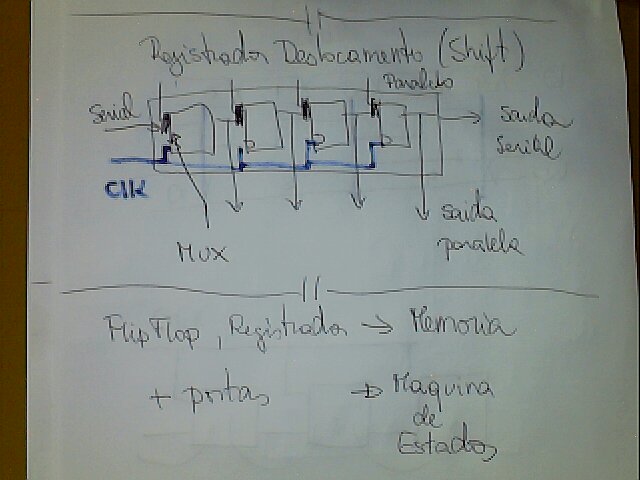 Registrador Deslocamento (Shift)
Paralelo
Serial
saida
serial
Clk
saida
paralela
MUX
FlipFlop, Registrador → Memoria
+ portas → Maquina
de
Estados